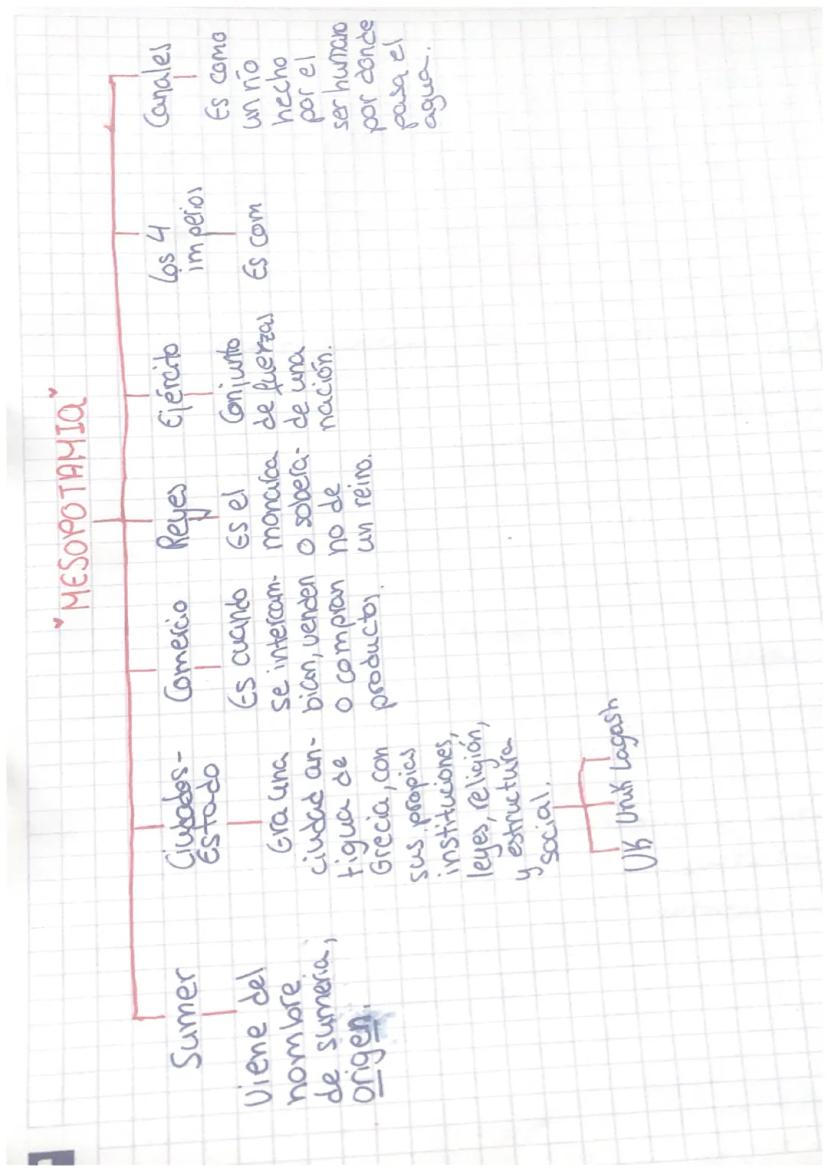 "MESOPOTAMIA"
Sumer
Viene del
nombre
de sumeria,
origen.
Ciudados-
Estado
Era una
ciudad an-
tigua de
Grecia, con
sus propias
instituciones,
leyes, religión,
y estructura
social.
Uk Unik Lagash
Comercio
Es cuando
se intercam-
bian, venden
o compran
productos.
Reyes
Es el
monarca
o sobera-
no de
un reino.
Ejército
Conjunto
de fuerzas
de una
nación.
Los 4
imperios
Es com
Canales
Es como
un río
hecho
por el
ser humano
por donde
pasa el
agua.